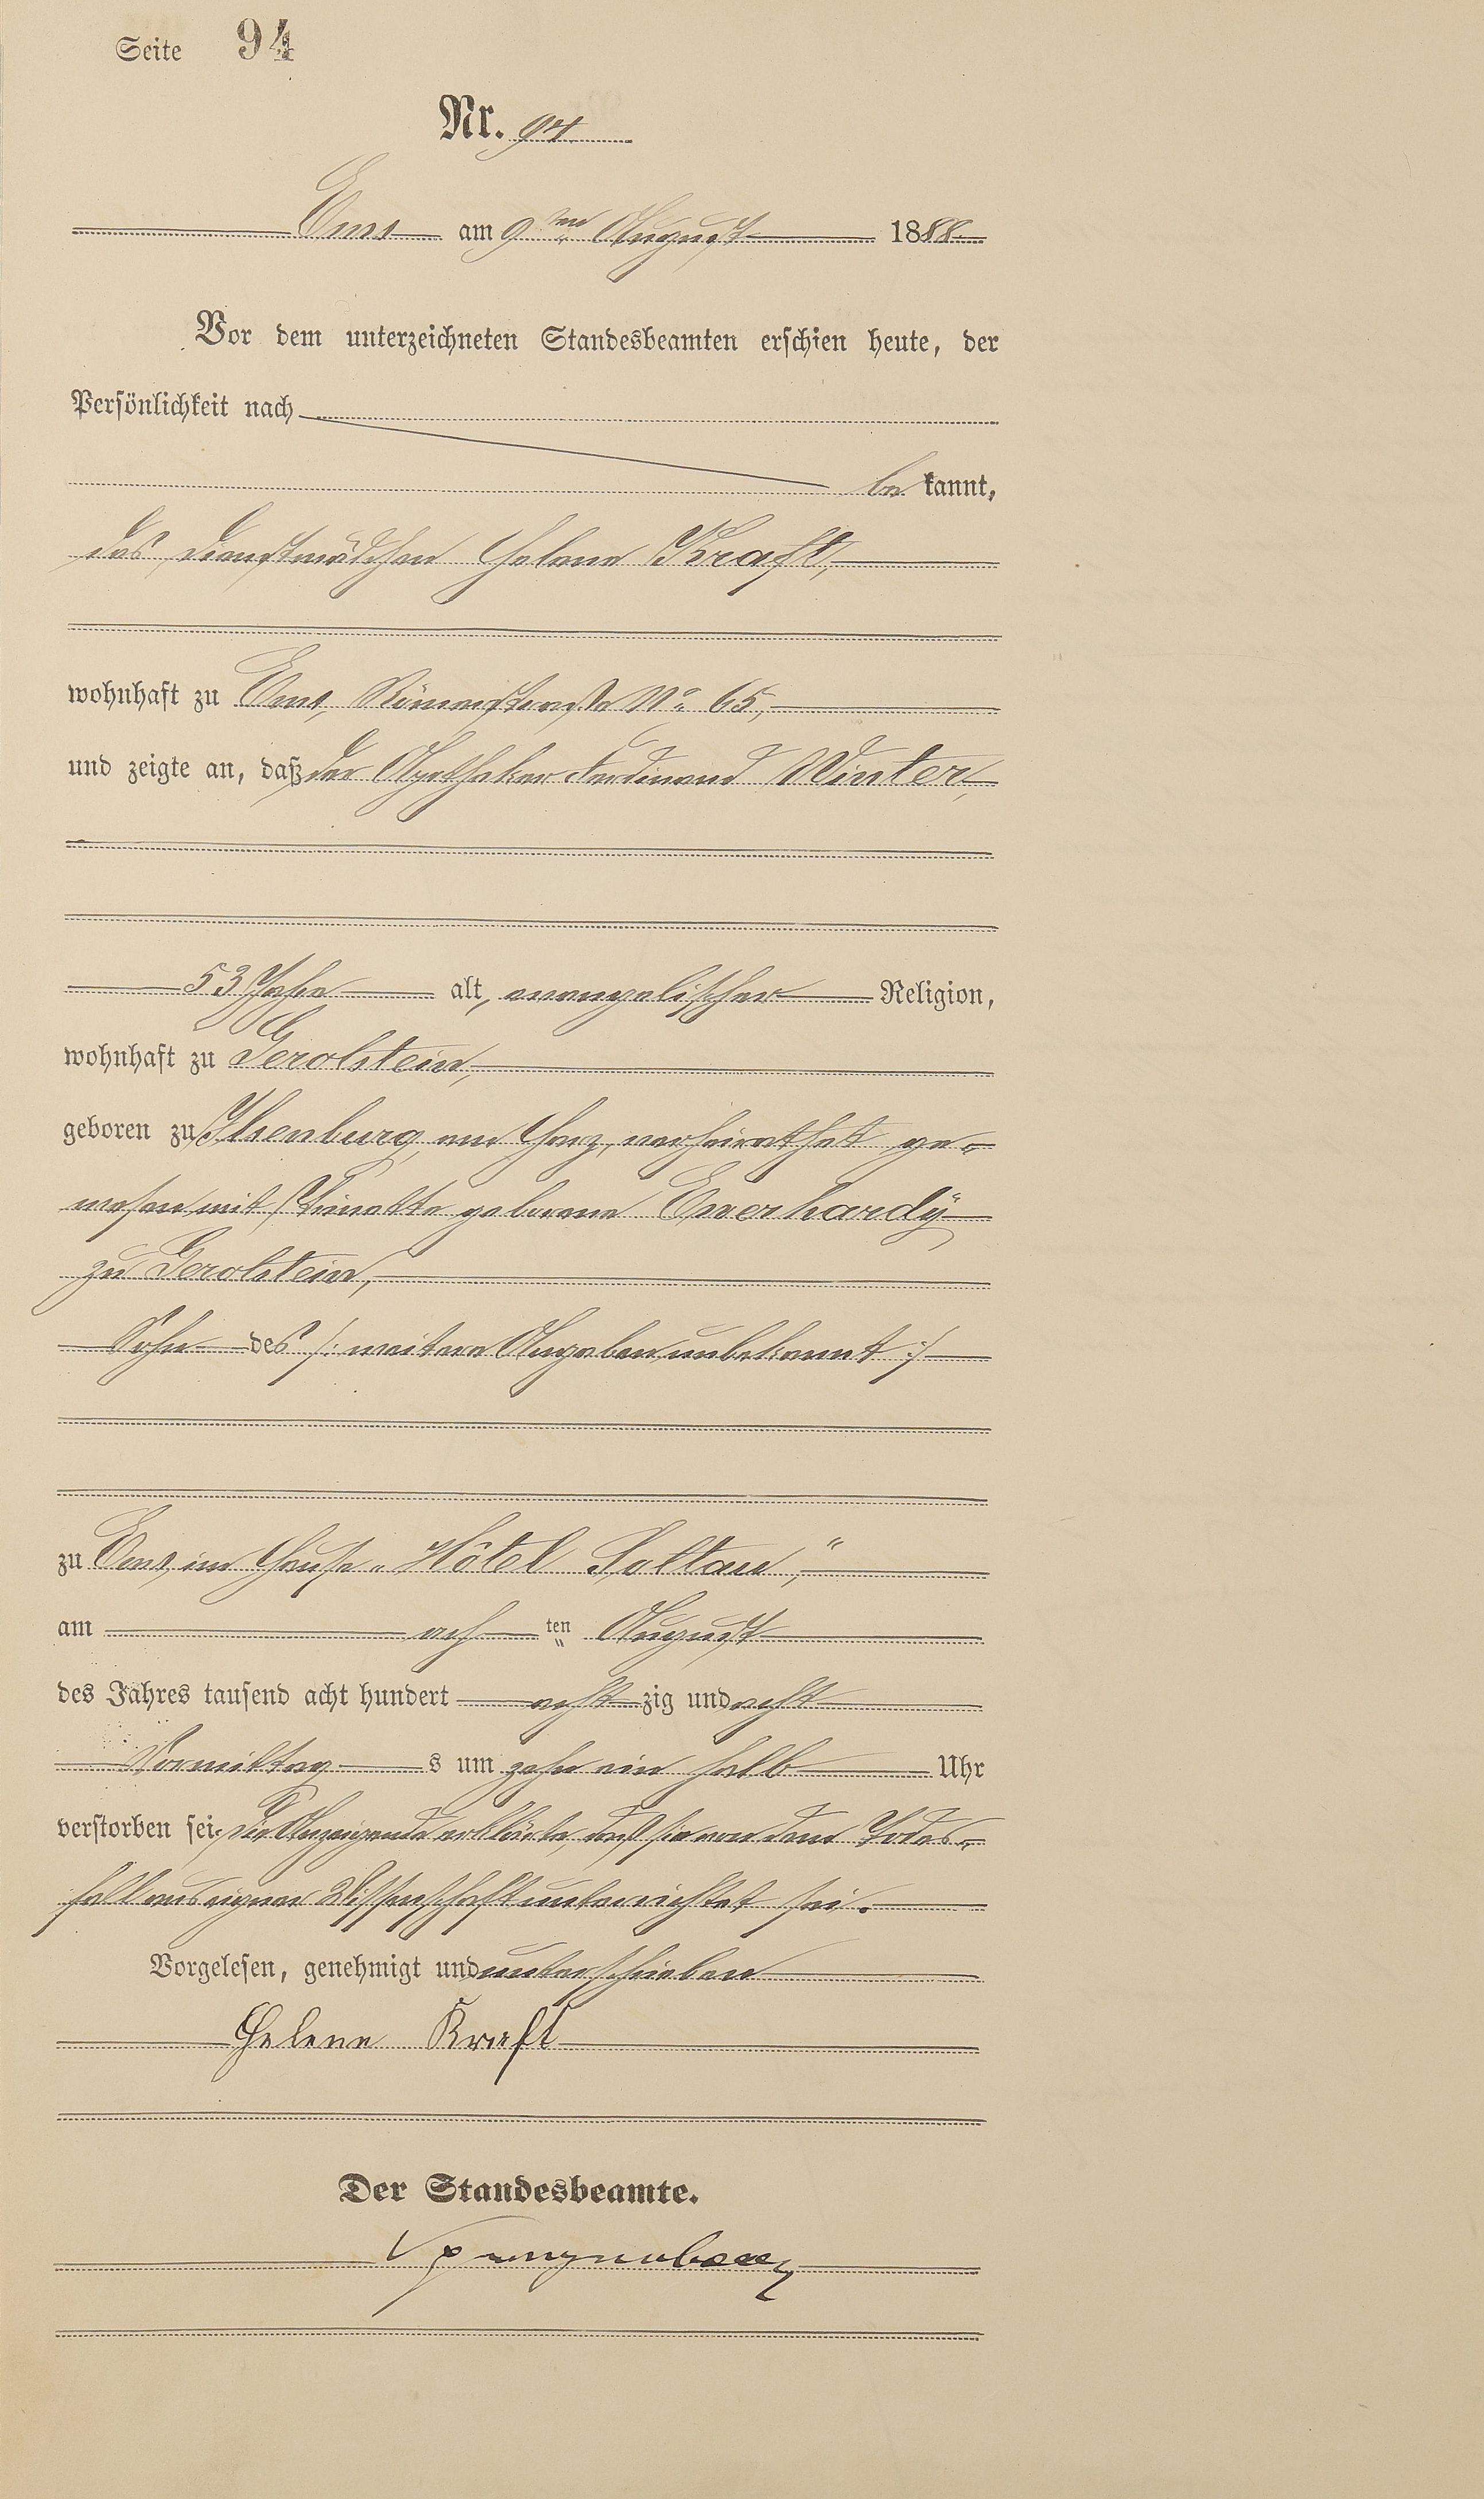 Seite 94
Nr. 94
Ems am 9ten August 1888.
Vor dem unterzeichneten Standesbeamten erschien heute, der
Persönlichkeit nach
be kannt,
das Dienstmädchen Helene Kraft,
wohnhaft zu Ems, Römerstraße No. 65,
und zeigte an, daß der Apotheker Ferdinand Winter,
53 Jahre alt, evangelischer Religion,
wohnhaft zu Gerolstein,
geboren zu Ilsenburg am Harz, verheirathet ge-
wesen mit geborene Everhardÿ
zu Gerolstein,
Sohn des /: weitere Angaben unbekannt :/
zu Ems, im Hause „Hôtel Soltau“,
am ach ten August
des Jahres tausend acht hundert acht zig und acht
Vormittag s um zehn ein halb Uhr
verstorben sei. Die Anzeigende erklärte, daß sie von dem Todes-
fall aus eigner Wissenschaft unterrichtet sei.
Vorgelesen, genehmigt und unterschrieben
Helene Kraft
Der Standesbeamte.